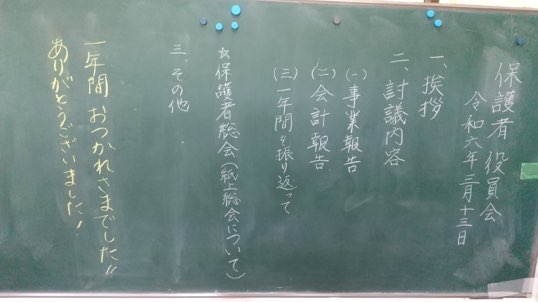 保護者役員会
令和六年三月十三日
一、挨拶
二、討議内容
(一)事業報告
(二)会計報告
(三)一年間を振り返って
☆保護者総会(紙上総会について)
三、その他
一年間おつかれさまでした!!
ありがとうございました!